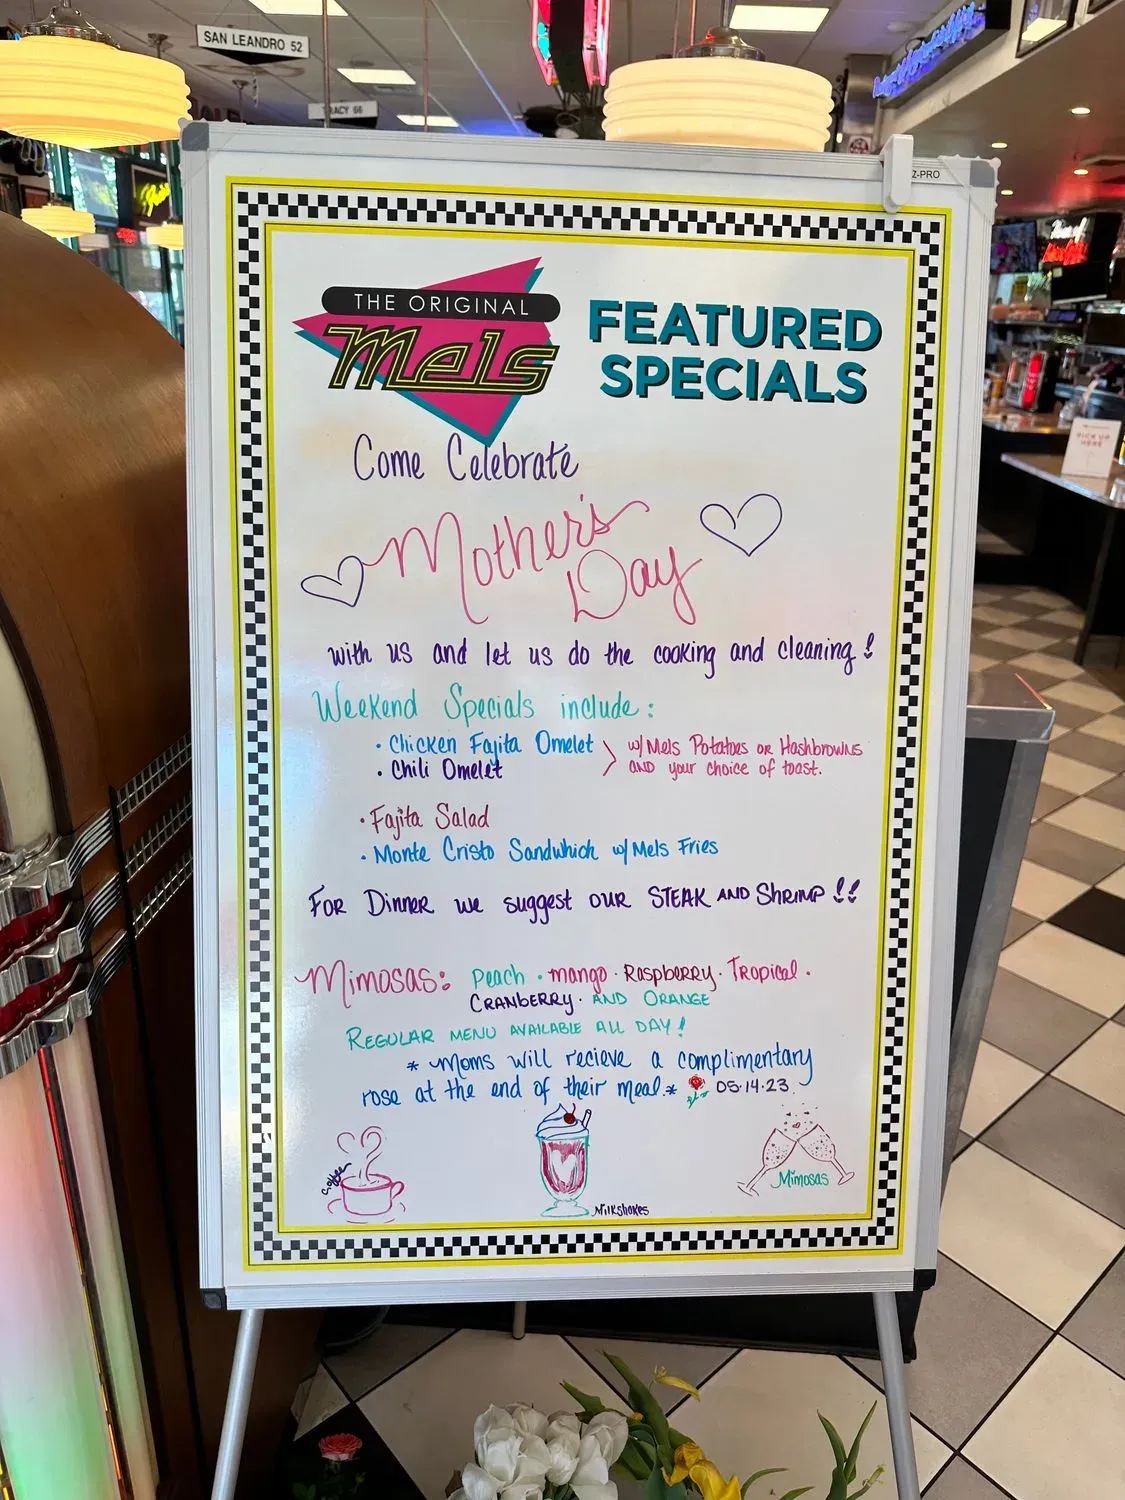 SAN LEANDRO 52
TRACY 66
Z-PRO
THE ORIGINAL
Mels
FEATURED
SPECIALS
Come Celebrate
Mother's
Day
with us and let us do the cooking and cleaning!
Weekend Specials include:
• Chicken Fajita Omelet
• Chili Omelet
w/ Mels Potatoes or Hashbrowns
and your choice of toast.
• Fajita Salad
• Monte Cristo Sandwhich w/ Mels Fries
For Dinner we suggest our STEAK AND Shrimp!!
Mimosas: Peach · mango · Raspberry · Tropical ·
CRANBERRY · AND ORANGE
REGULAR MENU AVAILABLE ALL DAY!
* Moms will recieve a complimentary
rose at the end of their meal.* 05·14·23.
Coffee
Milkshakes
Mimosas
PICK UP
HERE